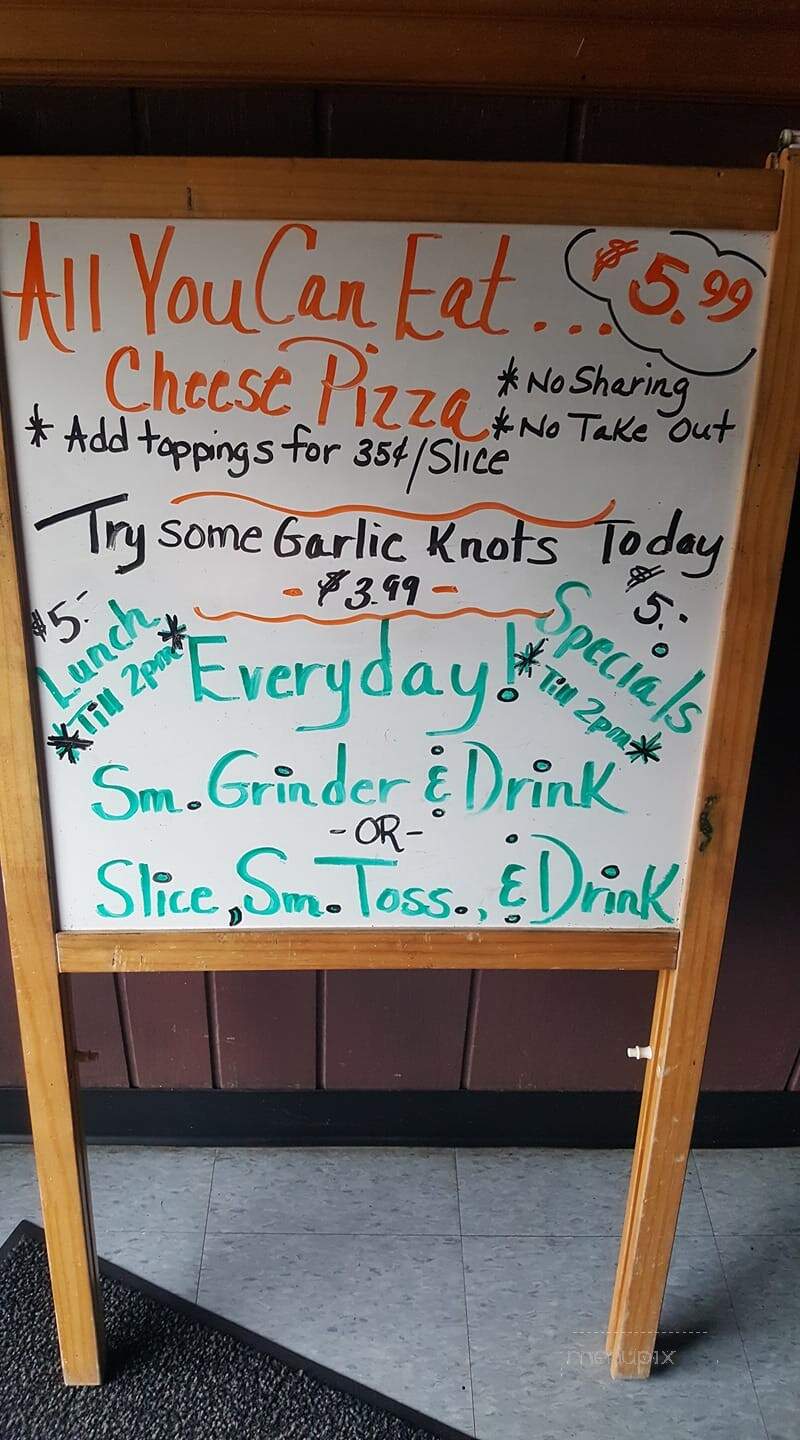 All You Can Eat... $5.99
Cheese Pizza
* No Sharing
* No Take Out
* Add toppings for 35¢/Slice
Try some Garlic Knots Today
- $3.99 -
$5.-
Lunch
*Till 2pm*
Everyday!
$5.-
Specials
*Till 2pm*
Sm. Grinder & Drink
- OR -
Slice, Sm. Toss., & Drink
menupix